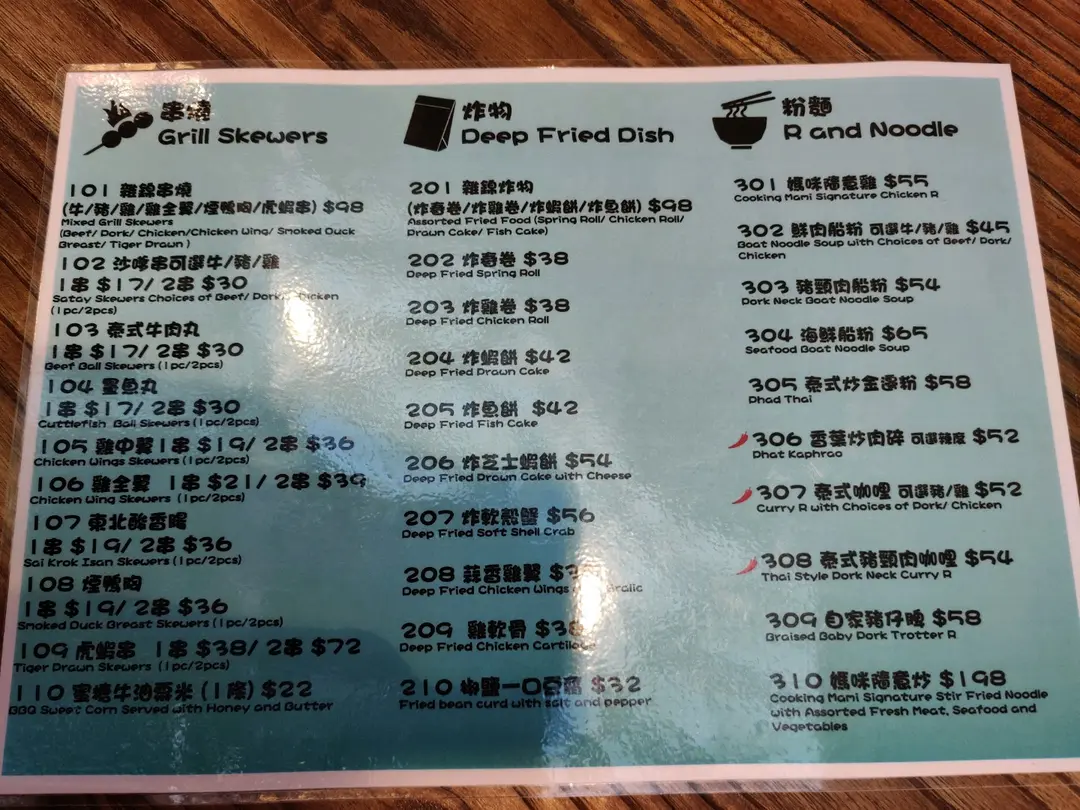 串燒
Grill Skewers
101 雜錦串燒
(牛/豬/雞/雞全翼/煙鴨胸/虎蝦串) $98
Mixed Grill Skewers
(Beef/ Pork/ Chicken/Chicken Wing/ Smoked Duck
Breast/ Tiger Prawn )
102 沙嗲串可選牛/豬/雞
1串 $17/ 2串 $30
Satay Skewers Choices of Beef/ Pork/
(1pc/2pcs)
103 泰式牛肉丸
1串 $17/ 2串 $30
Beef Ball Skewers (1pc/2pcs)
104 墨魚丸
1串 $17/ 2串 $30
Cuttlefish Ball Skewers (1pc/2pcs)
105 雞中翼 1串 $19/ 2串 $36
Chicken Wings Skewers (1pc/2pcs)
106 雞全翼 1串 $21/ 2串 $39
Chicken Wing Skewers (1pc/2pcs)
107 東北酸香腸
1串 $19/ 2串 $36
Sai Krok Isan Skewers (1pc/2pcs)
108 煙鴨胸
1串 $19/ 2串 $36
Smoked Duck Breast Skewers (1pc/2pcs)
109 虎蝦串 1串 $38/ 2串 $72
Tiger Prawn Skewers (1pc/2pcs)
110 蜜燒牛油粟米 (1條) $22
BBQ Sweet Corn Served with Honey and Butter
炸物
Deep Fried Dish
201 雜錦炸物
(炸春卷/炸雞卷/炸蝦餅/炸魚餅) $98
Assorted Fried Food (Spring Roll/ Chicken Roll/
Prawn Cake/ Fish Cake)
202 炸春卷 $38
Deep Fried Spring Roll
203 炸雞卷 $38
Deep Fried Chicken Roll
204 炸蝦餅 $42
Deep Fried Prawn Cake
205 炸魚餅 $42
Deep Fried Fish Cake
206 炸芝士蝦餅 $54
Deep Fried Prawn Cake with Cheese
207 炸軟殼蟹 $56
Deep Fried Soft Shell Crab
208 蒜香雞翼
Deep Fried Chicken Wings
209 雞軟骨 $38
Deep Fried Chicken Cartilage
210 椒鹽一口豆腐 $32
Fried bean curd with salt and pepper
粉麵
R and Noodle
301 媽咪隨意雞 $55
Cooking Mami Signature Chicken R
302 鮮肉船粉 可選牛/豬/雞 $45
Boat Noodle Soup with Choices of Beef/ Pork/
Chicken
303 豬頸肉船粉 $54
Pork Neck Boat Noodle Soup
304 海鮮船粉 $65
Seafood Boat Noodle Soup
305 泰式炒金邊粉 $58
Phad Thai
306 香葉炒肉碎 可選辣度 $52
Phat Kaphrao
307 泰式咖喱 可選豬/雞 $52
Curry R with Choices of Pork/ Chicken
308 泰式豬頸肉咖喱 $54
Thai Style Pork Neck Curry R
309 自家豬仔腳 $58
Braised Baby Pork Trotter R
310 媽咪隨意炒 $198
Cooking Mami Signature Stir Fried Noodle
with Assorted Fresh Meat, Seafood and
Vegetables